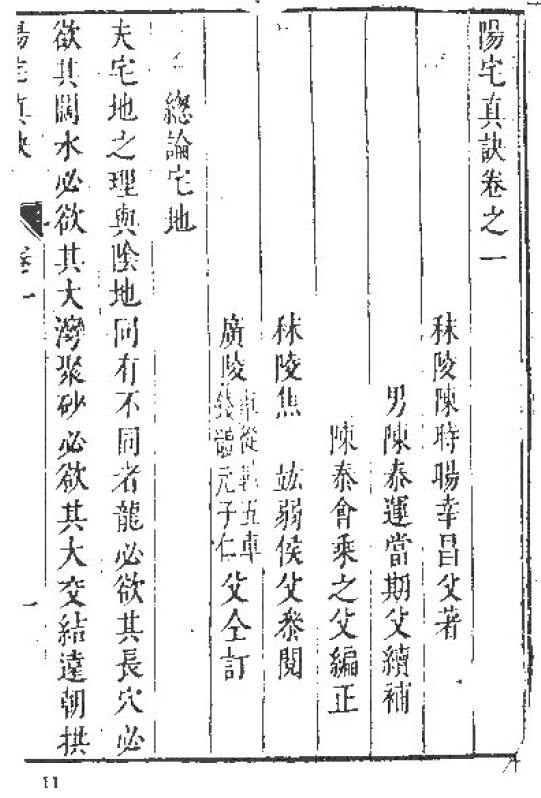 陽宅真訣卷之一
秣陵陳時暘幸昌父著
男陳泰運當期父續補
陳泰會乘之父編正
秣陵焦竑弱侯父叅閱
廣陵
五車
元子仁
父仝訂
總論宅地
夫宅地之理與陰地同有不同者龍必欲其長穴必
欲其闊水必欲其大灣聚砂必欲其大交結遠朝拱
陽宅真訣
卷一
一
11